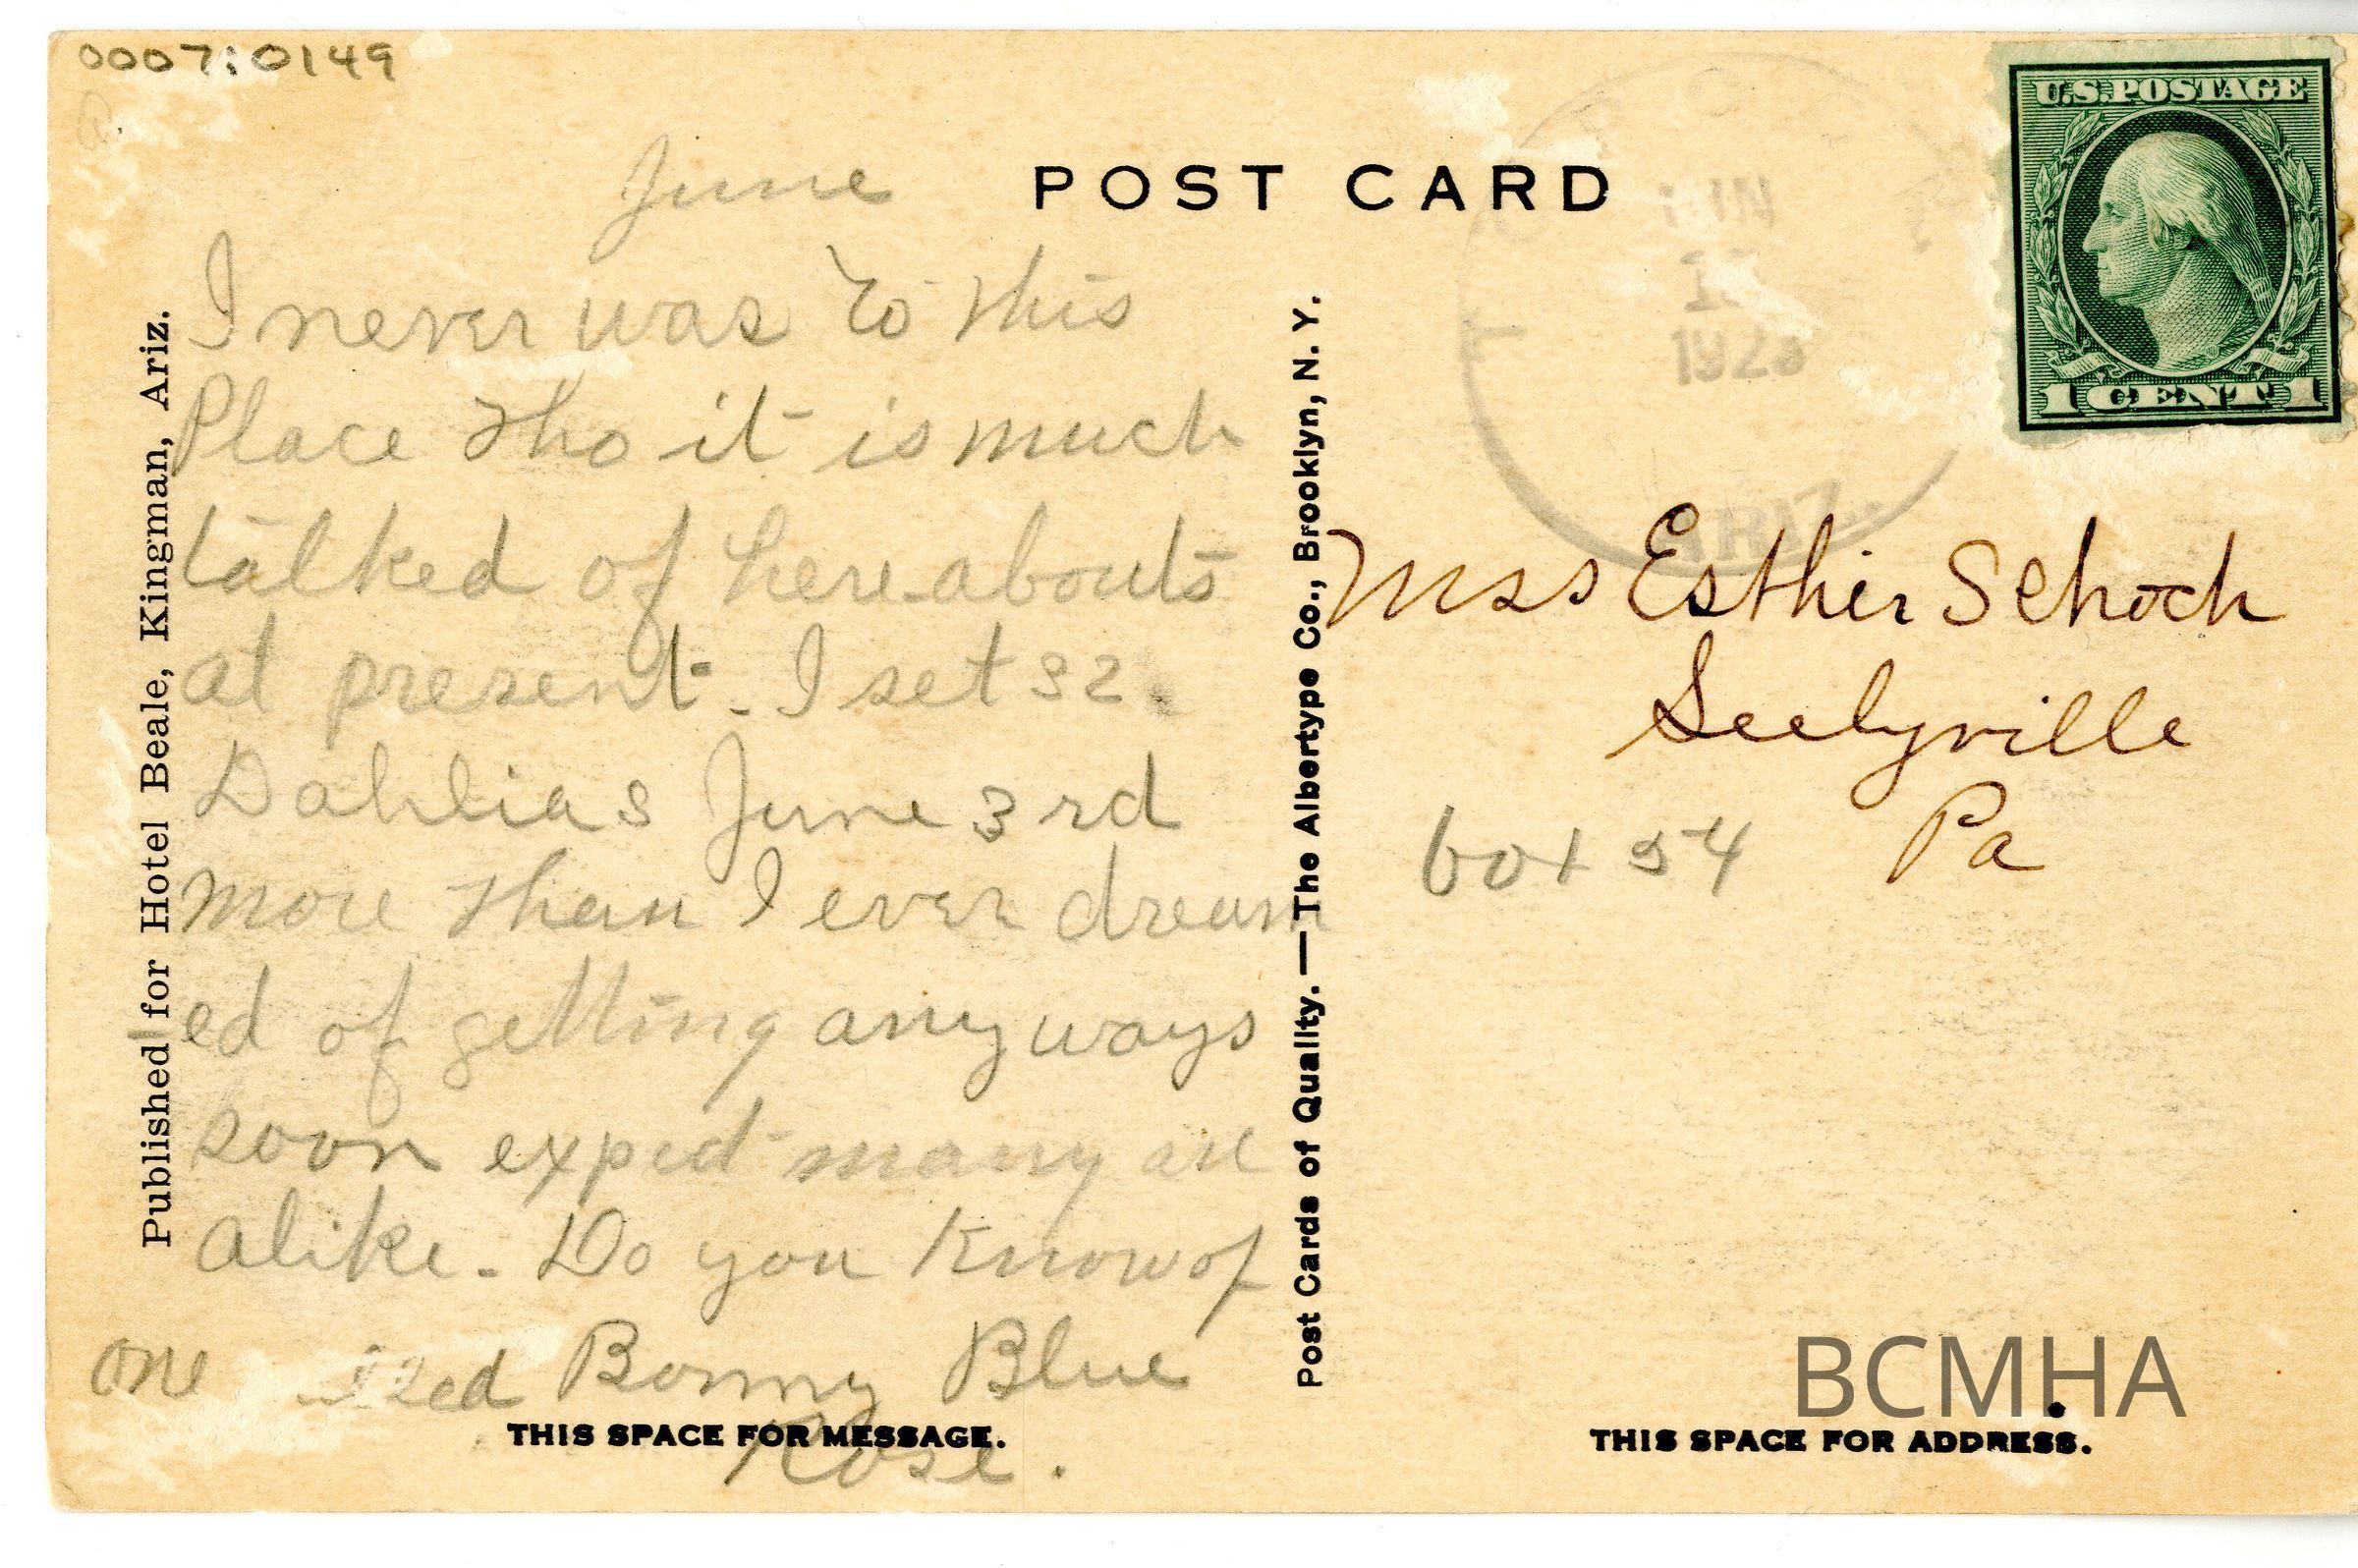 0007:0149
POST CARD
June
I never was to this
Place tho it is much
talked of here-abouts
at present. I set 32
Dahlias June 3rd
more than I ever dream
ed of getting any ways
soon expect many are
alike. Do you Know of
one Bonny Blue
Rose.
THIS SPACE FOR MESSAGE.
Published for Hotel Beale, Kingman, Ariz.
Post Cards of Quality. — The Albertype Co., Brooklyn, N. Y.
ARIZ.
U.S. POSTAGE
1 CENT 1
Miss Esther Schoch
Seelyville
Pa
box 54
BCMHA
THIS SPACE FOR ADDRESS.